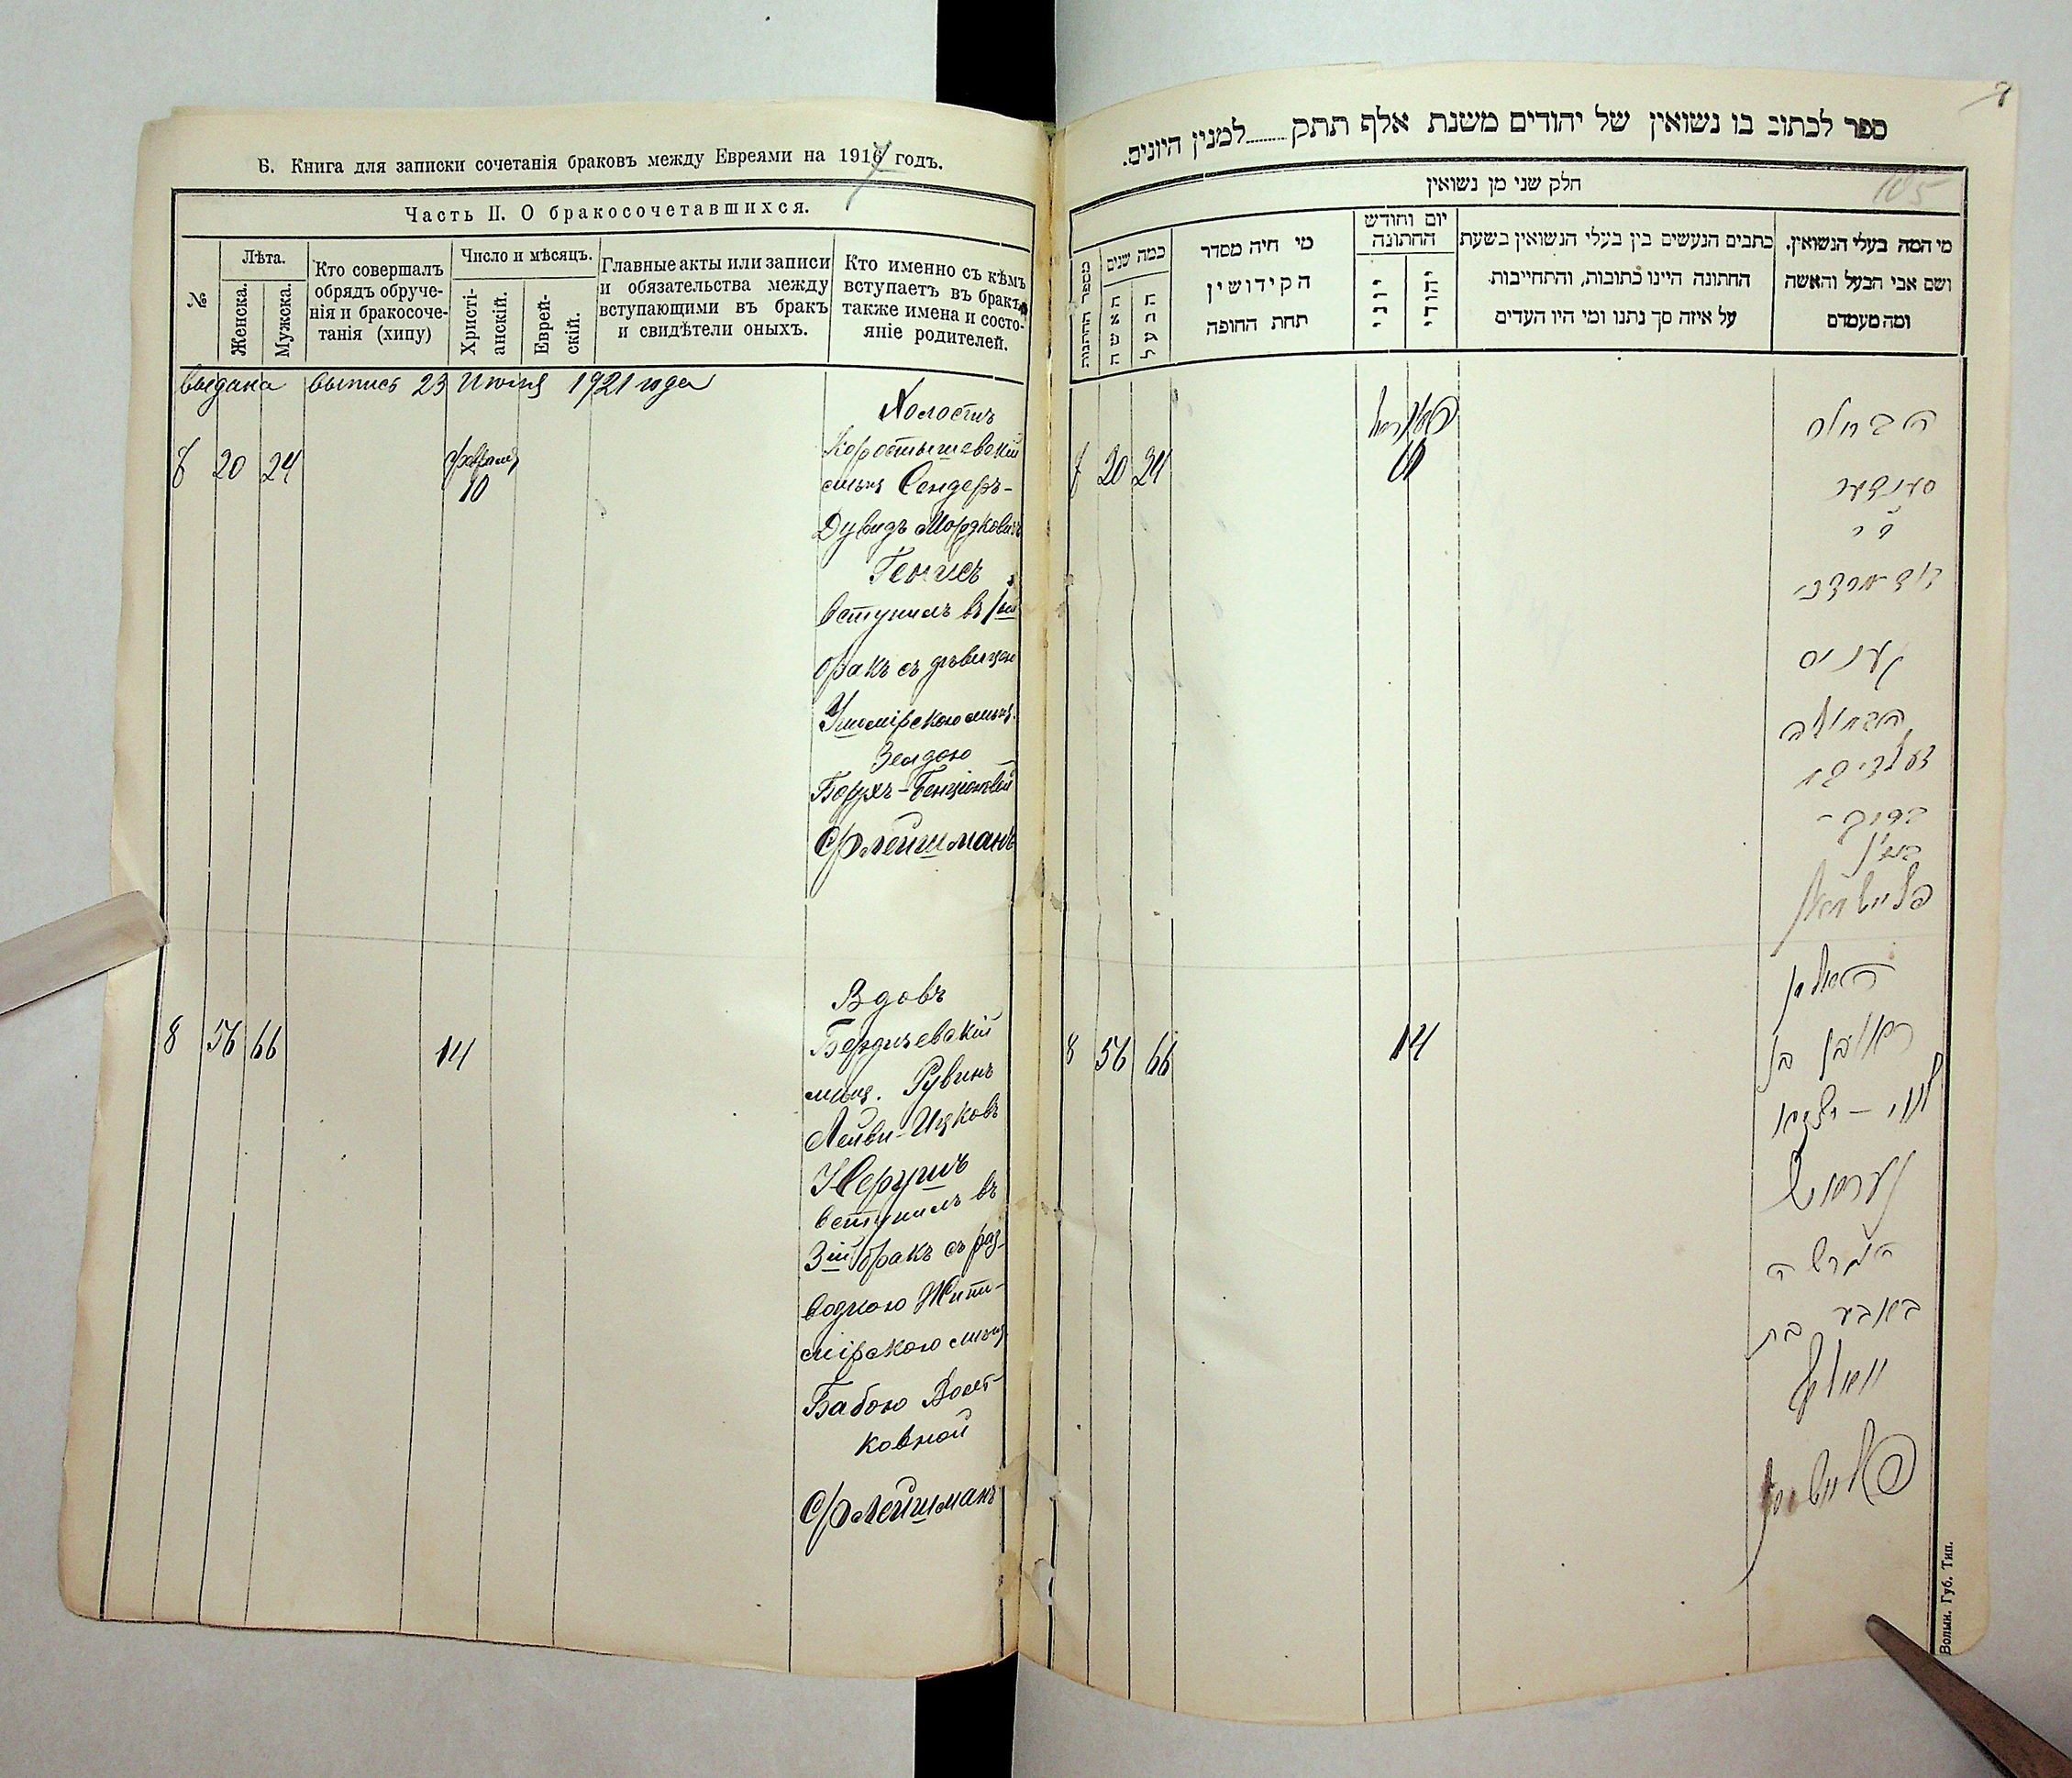 Б. Книга для записки сочетанія браковъ между Евреями на 1917 годъ.
Часть II. О бракосочетавшихся.
№
Лѣта.
Женска.
Мужска.
Кто совершалъ
обрядъ обруче-
нія и бракосоче-
танія (хипу)
Число и мѣсяцъ.
Христі-
анскій.
Еврей-
скій.
Главные акты или записи
и обязательства между
вступающими въ бракъ
и свидѣтели оныхъ.
Кто именно съ кѣмъ
вступаетъ въ бракъ,
также имена и состо-
яніе родителей.
Выдана выпись 23 Июня 1921 года
Холостъ
Коростышевскій
20 24 Февраля
10
мѣщ Сендеръ-
Дувидъ Мордковичъ
Генисъ
вступилъ въ 1ый
бракъ съ дѣвицею
Ушомірскою мѣщ.
Зелдою
Борухъ-Бенціоновой
Флейшманъ
Вдовъ
8 56 66 14
Бердичевскій
мѣщ. Рувинъ
Лейви-Ицковъ
вступилъ въ
3ій бракъ съ раз-
водною Жито-
мірскою мѣщ
Бабою
ковной
Флейшманъ
ספר לכתוב בו נשואין של יהודים משנת אלף תתק........למנין היונים.
105
חלק שני מן נשואין
מי המה בעלי הנשואין,
ושם אבי הבעל והאשה
ומה מעמדם
כתבים הנעשים בין בעלי הנשואין בשעת
החתונה היינו כתובות, והתחייבות
על איזה סך נתנו ומי היו העדים
יום וחודש
החתונה
יהודי
יוני
מי חיה מסדר
הקידושין
תחת החופה
כמה שנים
הבעל
האשה
מספר החתונות
20 24 10
הבחור
סענדער
דוד מרדכי
גענוס
הבתולה
ברוך-
פליישמאן
האלמן
8 56 66 14
ראובן בן
לוי - יצחק
הגרושה
באבע בת
פליישמאן
Волын. Губ. Тип.